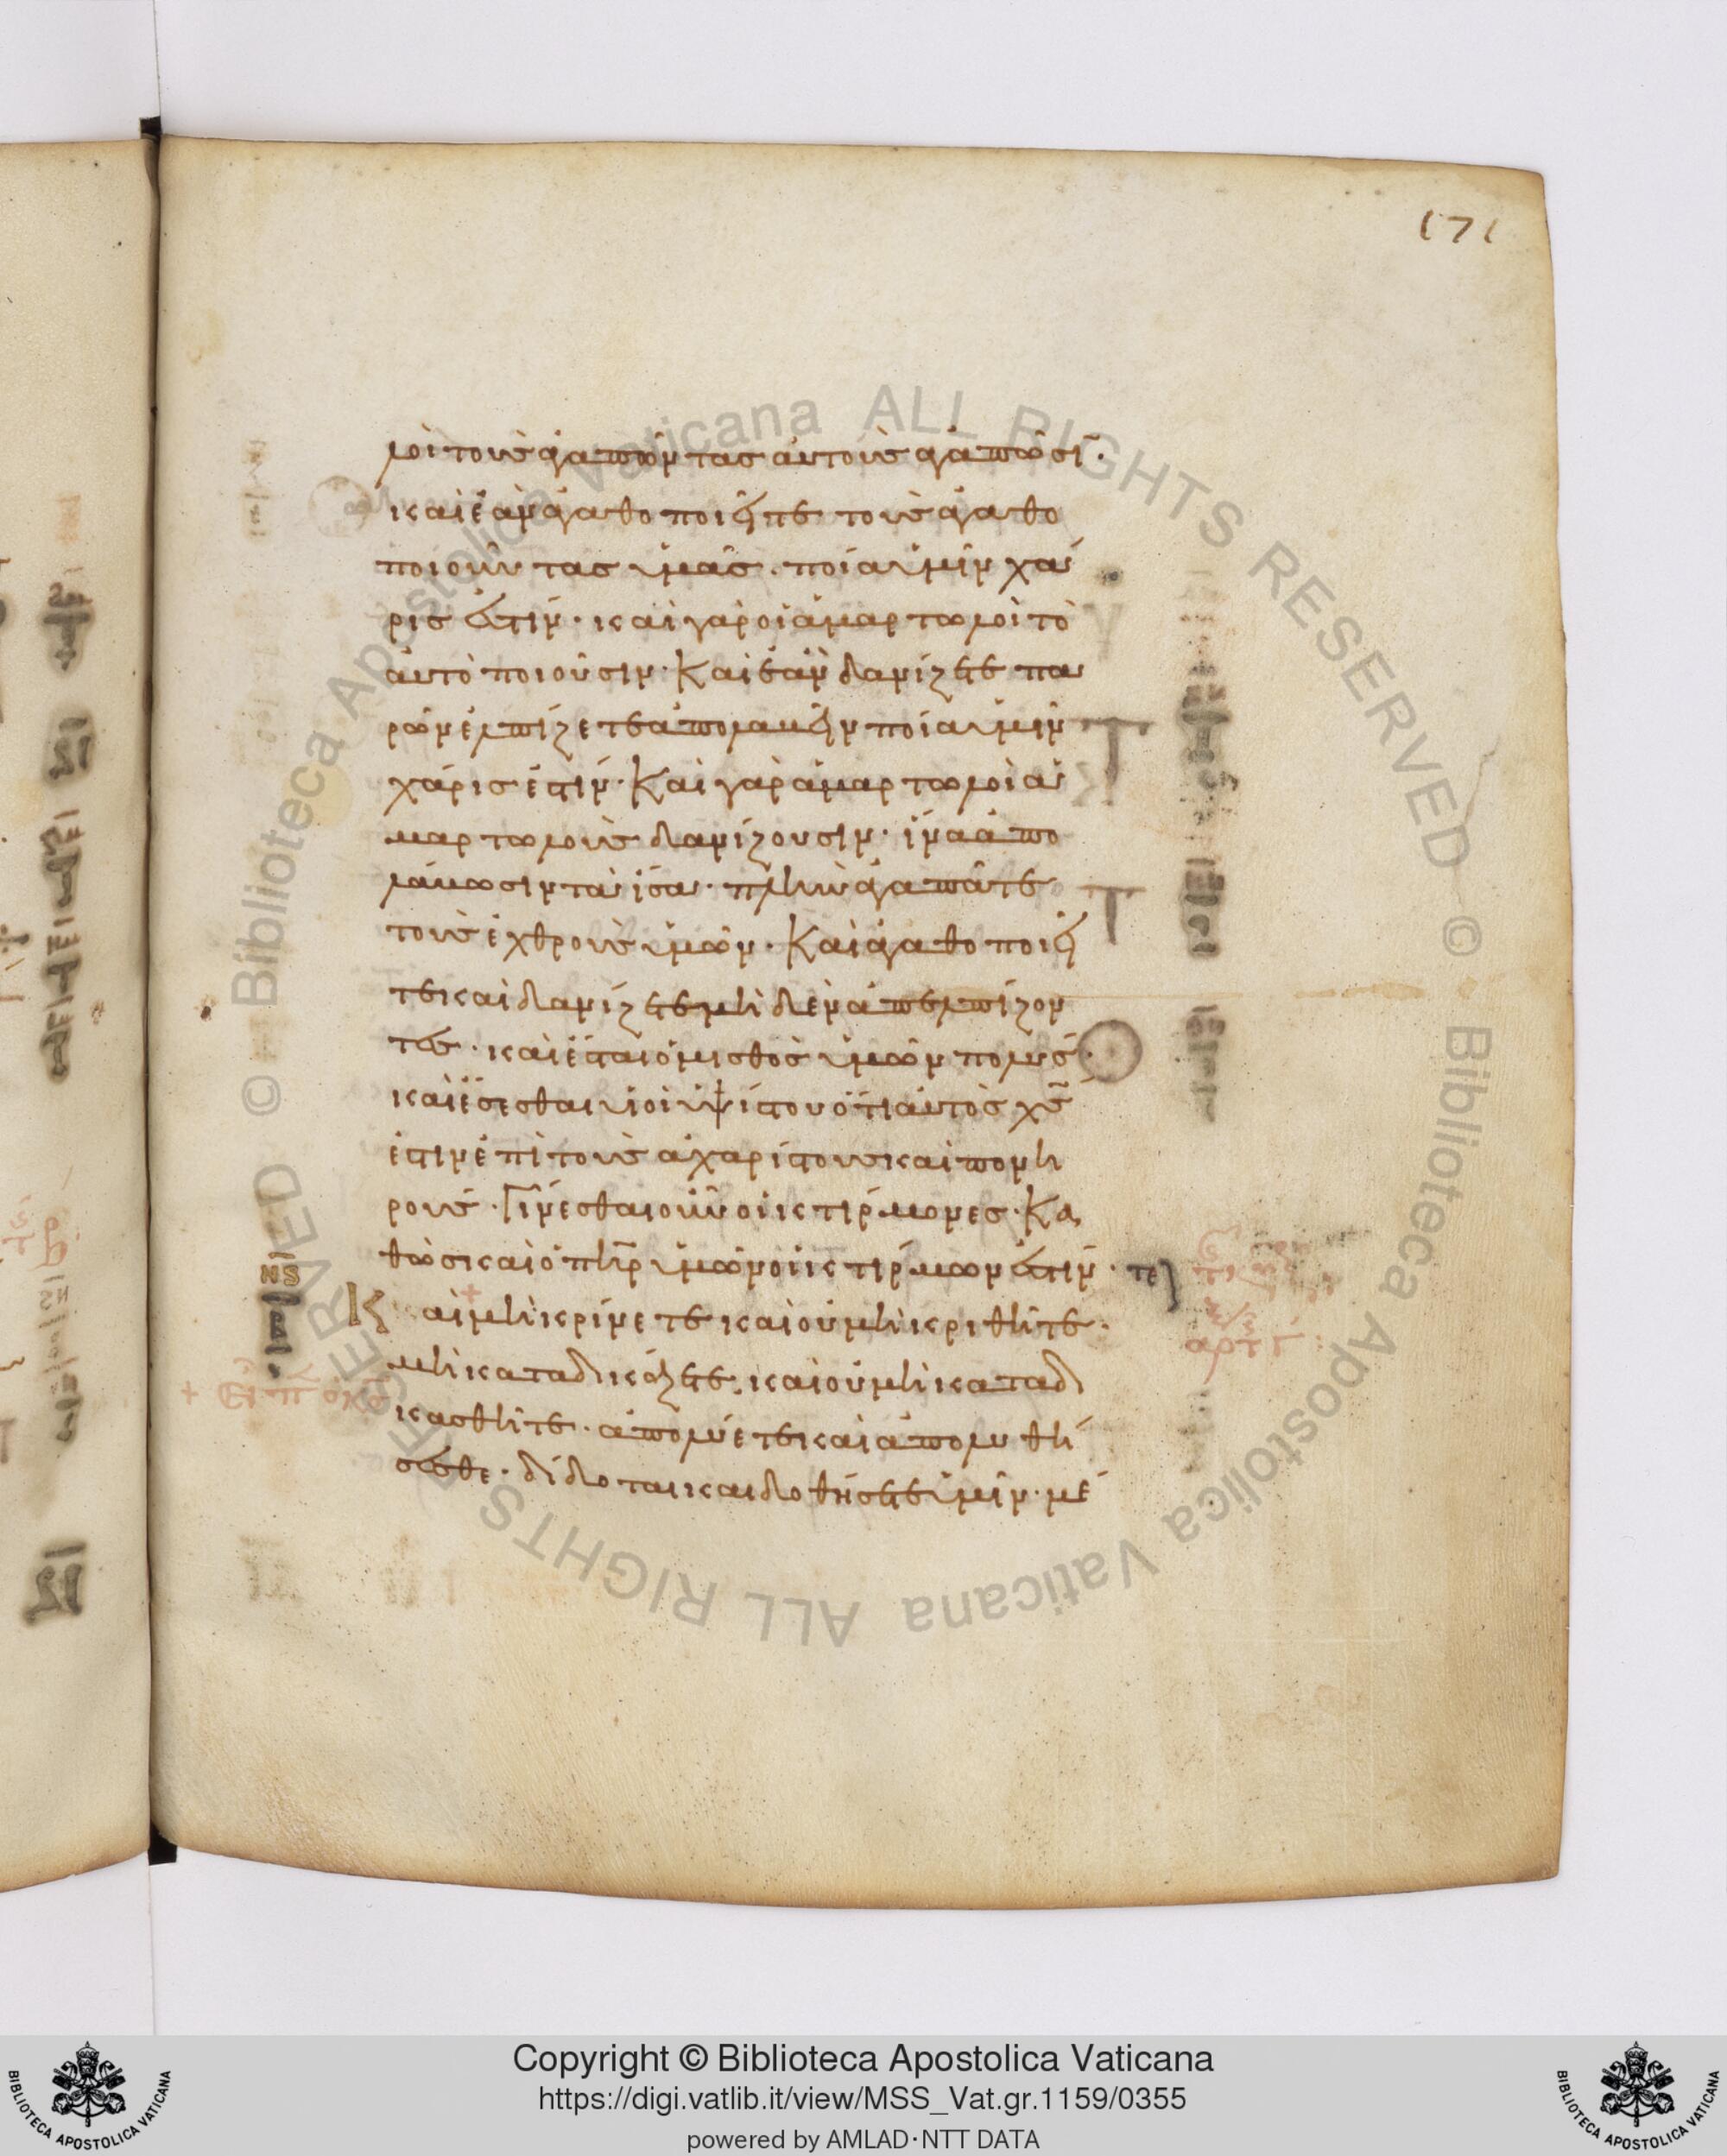 171
λοὶ τοὺς ἀγαπῶντας αὐτοὺς ἀγαπῶσῑ·
καὶ ἐὰν ἀγαθοποιῆτε τοὺς ἀγαθο
ποιοῦντας ὑμᾶς· ποία ὑμῖν χά
ρις ἐστίν· καὶ γὰρ οἱ ἁμαρτωλοὶ τὸ
αὐτὸ ποιοῦσιν· Καὶ ἐὰν δανίζετε πα
ρ ὧν ἐλπίζετε ἀπολαυεῖν ποία ὑμῖν
χάρις ἐστίν· Καὶ γὰρ ἁμαρτωλοὶ ἁ
μαρτωλοὺς δανίζουσιν· ἵνα ἀπο
λάυωσιν τὰ ἴσα· πλὴν ἀγαπᾶτε
τοὺς ἐχθροὺς ὑμῶν· Καὶ ἀγαθοποιεῖ
τε καὶ δανίζετε μὴδὲν ἀπελπίζον
τες· καὶ ἔσται ὁ μισθὸς ὑμῶν πολύς·
καὶ ἔσεσθαι υἱοὶ ὑψίστου ὅτι αὐτὸς χς̄
ἐστιν ἐπὶ τοὺς ἀχαρίστους καὶ πονη
ρούς· Γίνεσθαι οὖν οἰκτίρμονες· Κα
θὼς καὶ ὁ πη̄ρ ὑμῶν οἰκτίρμων ἐστίν· τε
Καὶ μὴ κρίνετε καὶ οὐ μὴ κριθῆτε·
μὴ καταδικάζετε· καὶ οὐ μὴ καταδι
κασθῆτε· ἀπολύετε καὶ ἀπολυθή
σεσθε· δίδοται καὶ δοθήσετε ὑμῖν· μέ
νς
+ εἶπ ὁ κς
Copyright © Biblioteca Apostolica Vaticana
https://digi.vatlib.it/view/MSS_Vat.gr.1159/0355
powered by AMLAD·NTT DATA
BIBLIOTECA APOSTOLICA VATICANA
BIBLIOTECA APOSTOLICA VATICANA
© Biblioteca Apostolica Vaticana ALL RIGHTS RESERVED
© Biblioteca Apostolica Vaticana ALL RIGHTS RESERVED